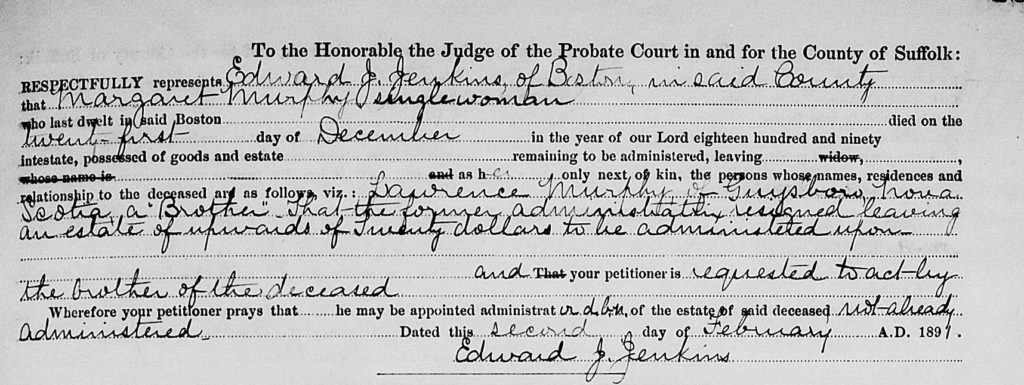 To the Honorable the Judge of the Probate Court in and for the County of Suffolk:
RESPECTFULLY represents Edward J. Jenkins, of Boston, in said County
that Margaret Murphy singlewoman
who last dwelt in said Boston died on the
twenty-first day of December in the year of our Lord eighteen hundred and ninety
intestate, possessed of goods and estate remaining to be administered, leaving widow,
whose name is and as her only next of kin, the persons whose names, residences and
relationship to the deceased are as follows, viz.: Lawrence Murphy of Guysboro, Nova
Scotia, a "Brother" That the former administratrix resigned leaving
an estate of upwards of Twenty dollars to be administered upon—
and That your petitioner is requested to act by
the brother of the deceased
Wherefore your petitioner prays that he may be appointed administrator d.b.n, of the estate of said deceased not already
administered. Dated this second day of February A.D. 1891.
Edward J. Jenkins